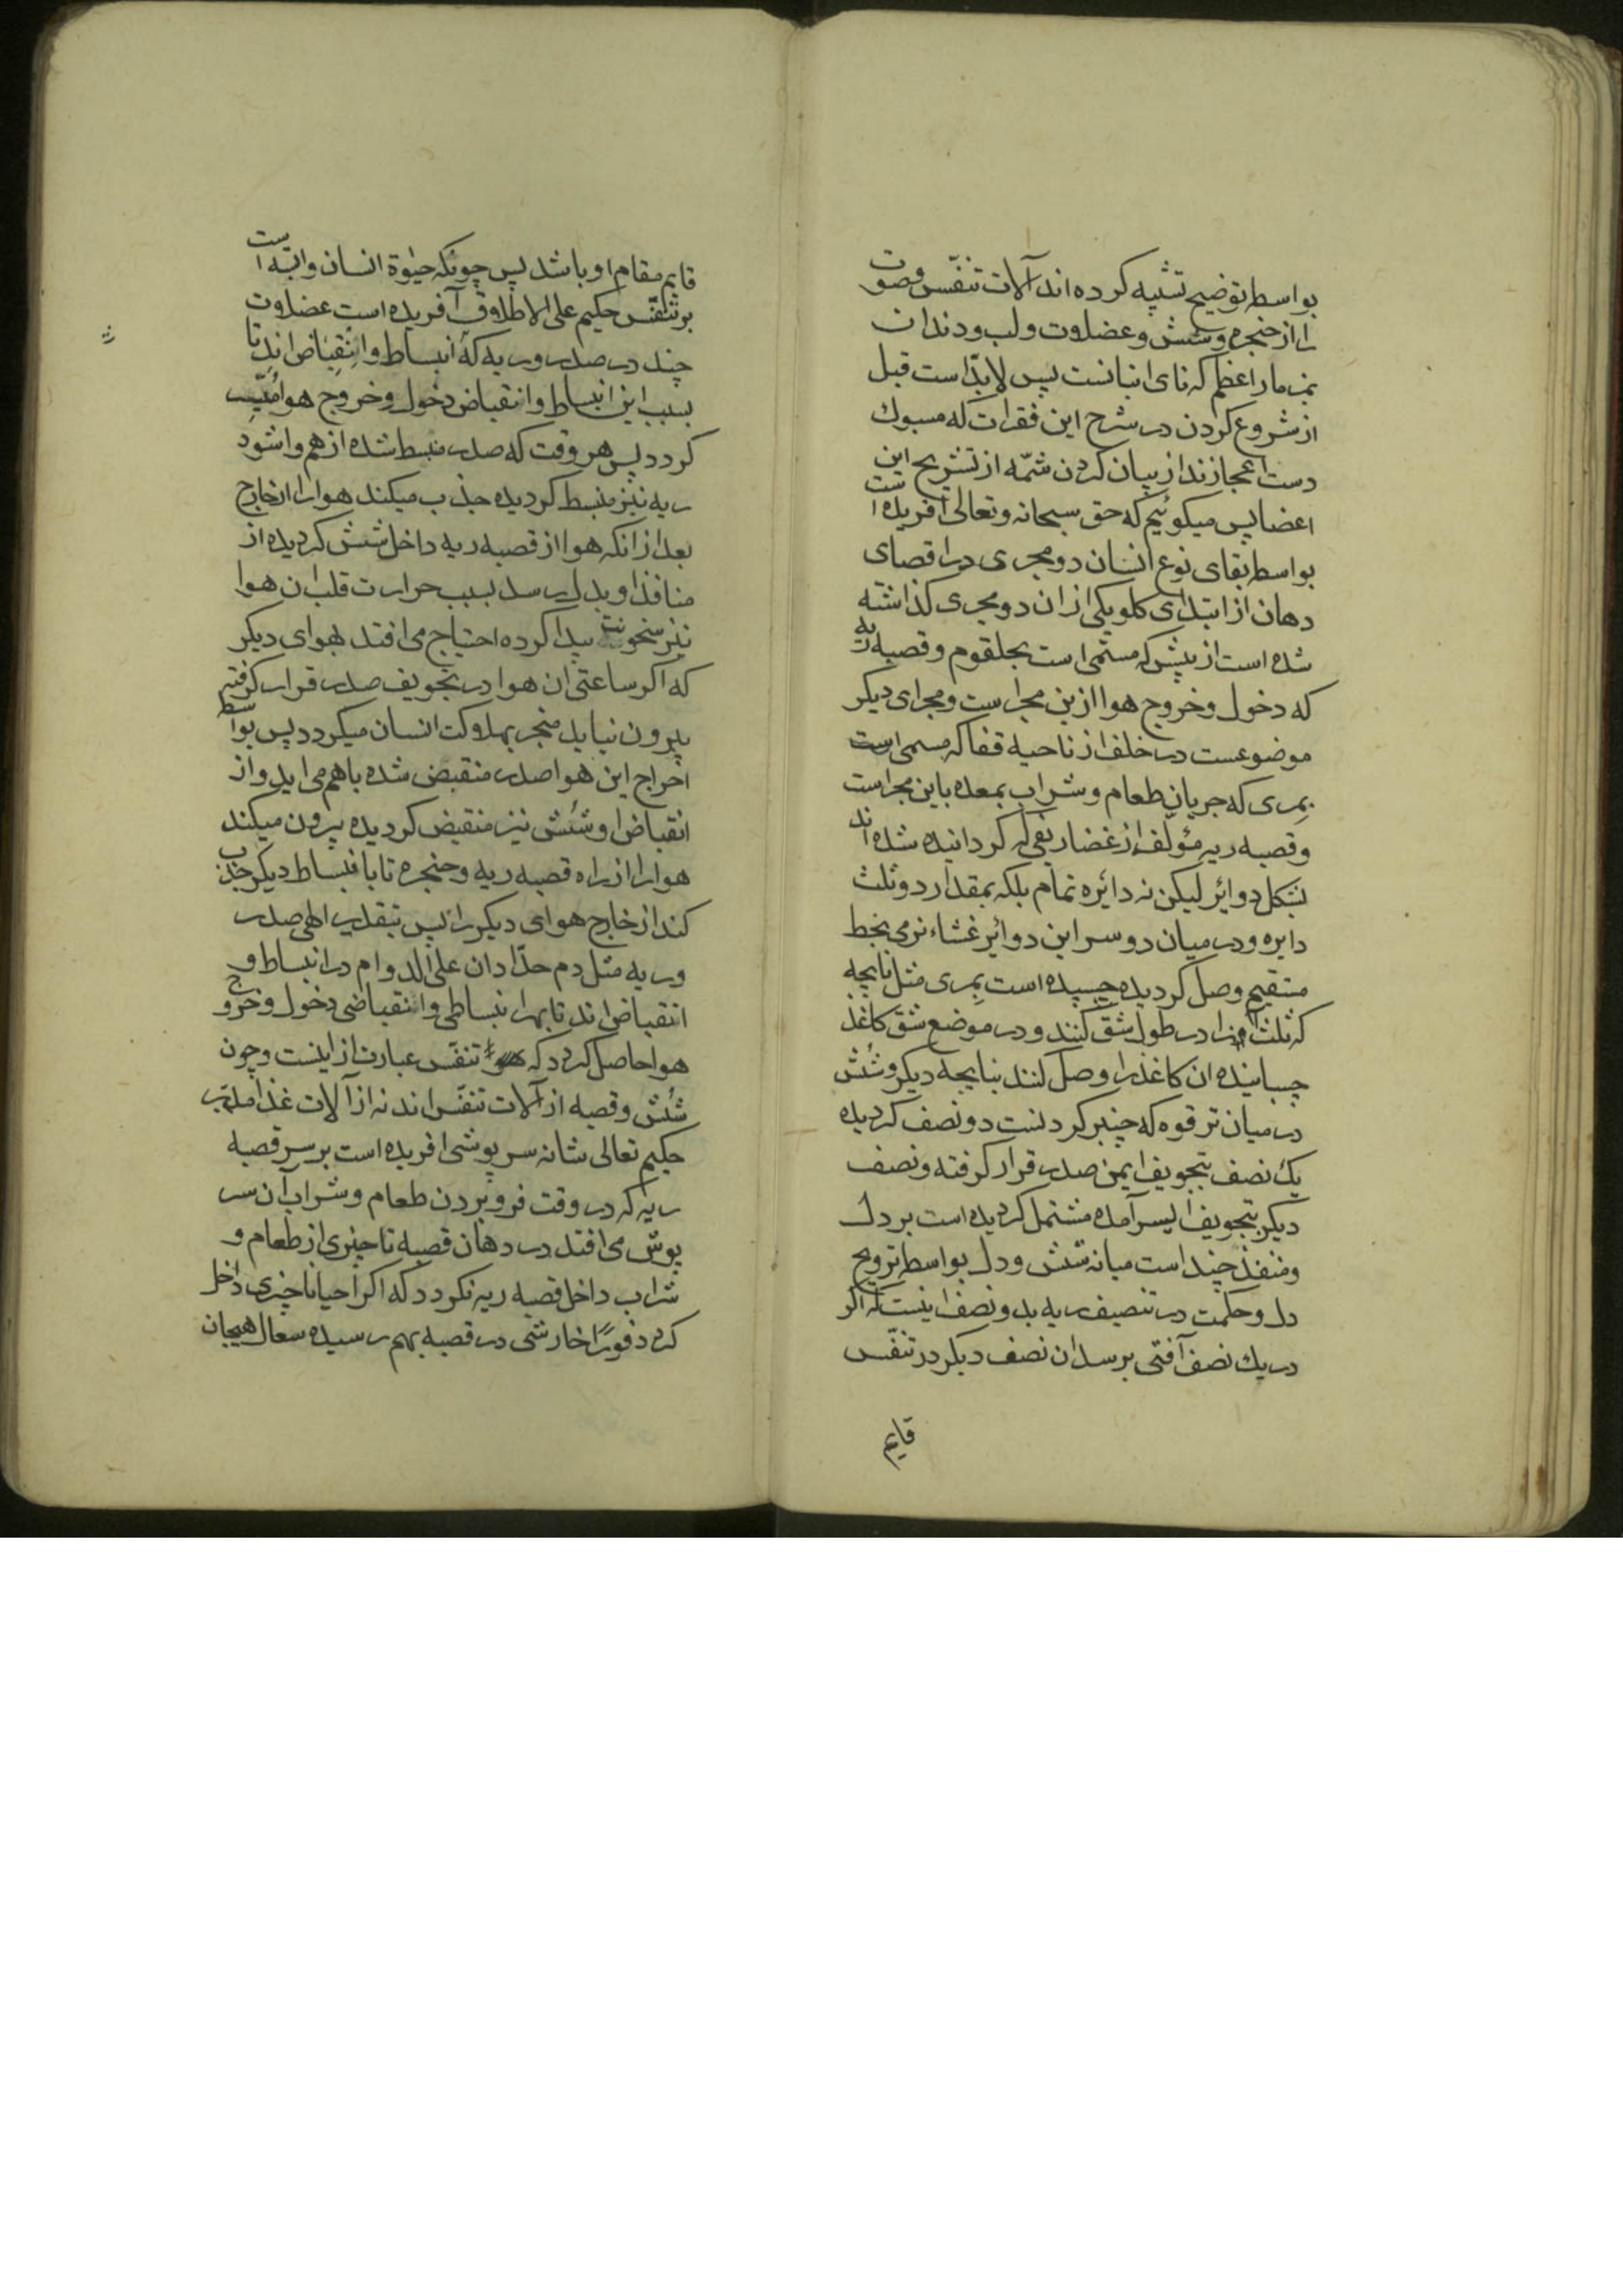 بواسطه توضیح تشبیه کرده اند آلات تنفّس و صوت
را از حنجره و شش و عضلات و لب و دندان
بمزمار اعظم که نای انبانست پس لابدّ است قبل
از شروع کردن در شرح این فقرات که مسبوک
دست اعجازند از بیان کردن شمّه از تشریح این
اعضا پس میکوئیم که حق سبحانه و تعالی آفریده است
بواسطه بقای نوع انسان دو مجری در اقصای
دهان از ابتدای کلو یکی از ان دو مجری کذاشته
شده است از پیش که مسّمی است بحلقوم و قصبه ریه
که دخول و خروج هوا ازین مجراست و مجرای دیکر
موضوعست در خلف از ناحیه قفا که مسمی است
بمِری که جریان طعام و شراب بمعده باین مجراست
و قصبه ریه مؤلّف از غضاریفی که کردانیده شده اند
بشکل دوائر لیکن نه دائره تمام بلکه بمقدار دو ثلث
دایره و در میان دو سر این دوائر غشاء نرمی بخط
مستقیم وصل کردیده چسپیده است بمِری مثل نایچه
که ثلث انرا در طول شقّ کنند و در موضع شق کاغذ
چسبانیده ان کاغذ را وصل کنند بنایچه دیکر و شُش
در میان ترقوه که چنبر کردنست دو نصف کردیده
یك نصف بتجویف ایمن صدر قرار کرفته و نصف
دیکر بتجویف ایسر آمده مشتمل کردیده است بر دل
و منفذ چند است میانه شش و دل بواسطه ترویح
دل و حکمت در تنصیف ریه بدو نصف اینست که اکر
در یك نصف آفتی برسد ان نصف دیکر در تنفّس
قایم
قایم مقام او باشد پس چونکه حیٰوة انسان وابسته است
بر تنفّس حکیم علی الاطلاق آفریده است عضلات
چند در صدر و ریه که انبساط و انقباض اند تا
بسبب این انبساط و انقباض دخول و خروج هوا میّسر
کردد پس هر وقت که صدر منبسط شده از هم وا شود
ریه نیز منبسط کردیده جذب میکند هوا را از خارج
بعد از انکه هوا از قصبه ریه داخل شش کردیده از
منافذ او بدل رسد بسبب حرارت قلب ان هوا
نیز سخونت پیدا کرده احتیاج می افتد بهوای دیکر
که اکر ساعتی ان هوا در تجویف صدر قرار کرفته
بیرون نیاید منجر بهلاکت انسان میکردد پس بواسطه
اخراج این هوا صدر منقبض شده باهم می اید و از
انقباض او شُش نیز منقبض کردیده بیرون میکند
هوا را از راه قصبه ریه و حنجره تا با نبساط دیکر جذب
کند از خارج هوای دیکر را پس بتقدیر الهی صدر
و ریه مثل دم حدّادان علی الدوام در انبساط و
انقباض اند تا بهر انبساطی و انقباضی دخول و خروج
هوا حاصل کردد که تنفّس عبارت از اینست و چون
شُش و قصبه از آلات تنفّس اند نه از آلات غذا مدبّر
حکیم تعالی شانه سر پوشی افریده است بر سر قصبه
ریه که در وقت فرو بردن طعام و شراب آن سر
پوش می افتد در دهان قصبه تا چیزی از طعام و
شراب داخل قصبه ریه نکردد که اکر احیانا چیزی داخل
کردد فورًا خارشی در قصبه بهم رسیده سعال هیجان